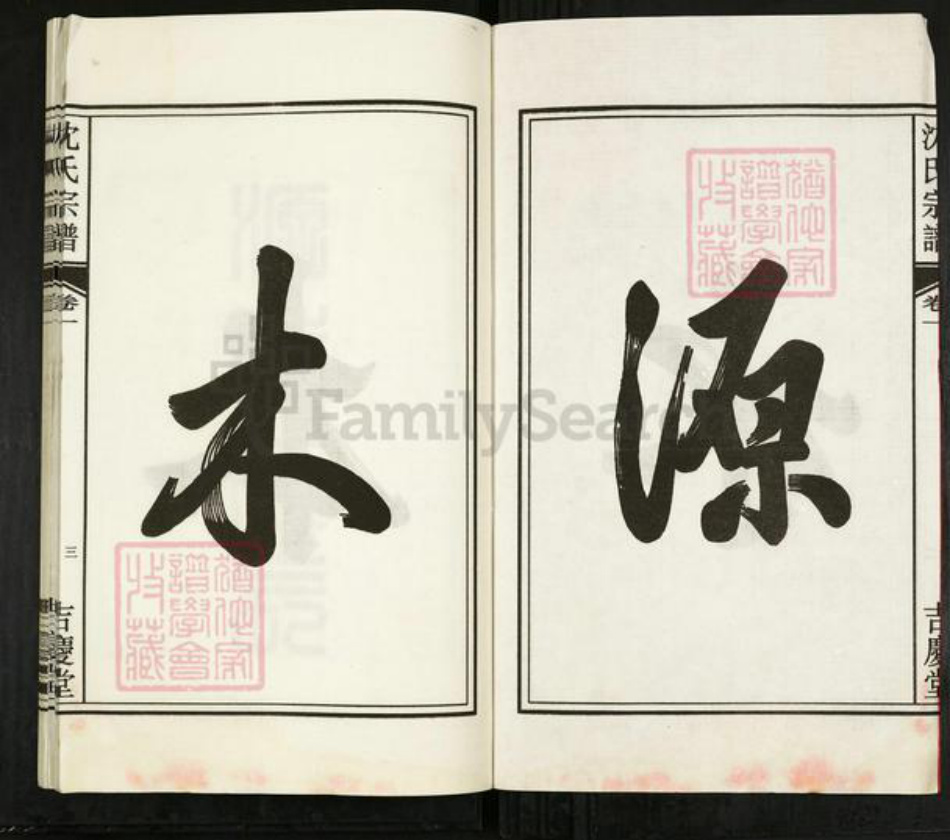 沈氏宗譜
卷一
吉慶堂
源
猶他家
譜學會
收藏
木
猶他家
譜學會
收藏
沈氏宗譜
卷一
三
吉慶堂
FamilySearch